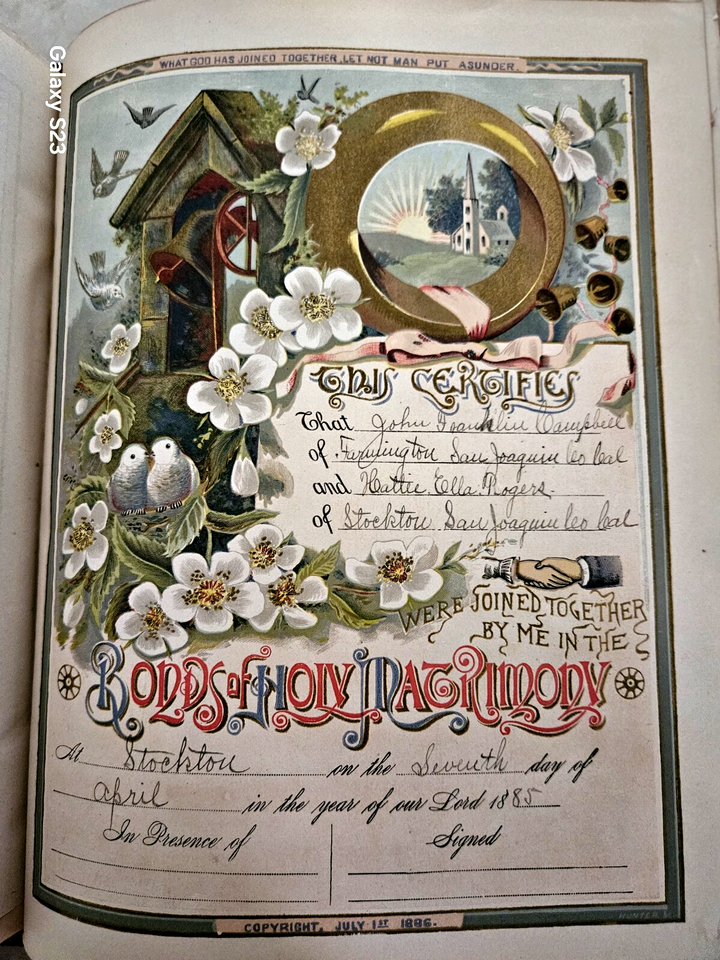 Galaxy S23
WHAT GOD HAS JOINED TOGETHER, LET NOT MAN PUT ASUNDER.
THIS CERTIFIES
That John Franklin Campbell
of Farmington San Joaquin Co Cal
and Hattie Ella Rogers
of Stockton San Joaquin Co Cal
WERE JOINED TOGETHER
BY ME IN THE
BONDS OF HOLY MATRIMONY
At Stockton on the Seventh day of
April in the year of our Lord 1885
In Presence of Signed
COPYRIGHT, JULY 1ST 1886.